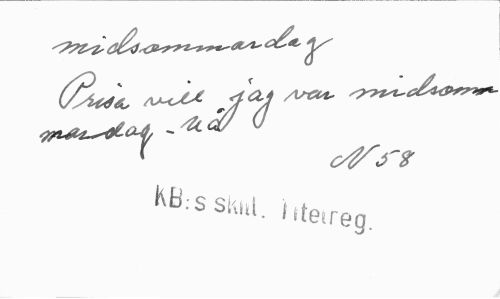 midsommardag
Prisa vill jag var midsomm
mardag - Uå
N 58
KB:s skill. Titelreg.